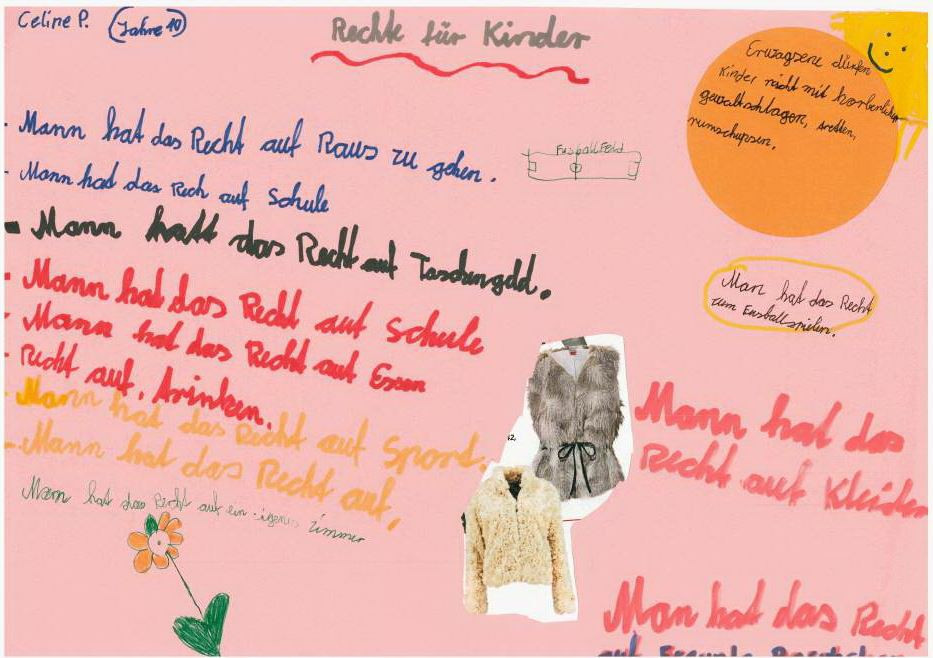 Celine P. (Jahre 10)
Rechte für Kinder
Erwagsene dürfen
Kinder nicht mit korberlicher
gewaltschlagen, tretten,
rumschupsen.
- Mann hat das Recht auf Raus zu gehen.
Fusballfeld
- Mann had das Rech auf Schule
- Mann hatt das Recht auf Taschengeld.
- Mann hat das Recht auf Schule
- Mann hat das Recht auf Essen
- Recht auf. trinken.
- Mann hat das Recht auf Sport.
- Mann hat das Recht auf,
Mann hat das Recht auf ein eigenes Zimmer
Man hat das Recht
zum Fusballspielen.
Mann hat das
Recht auf Kleider
Man hat das Recht
auf